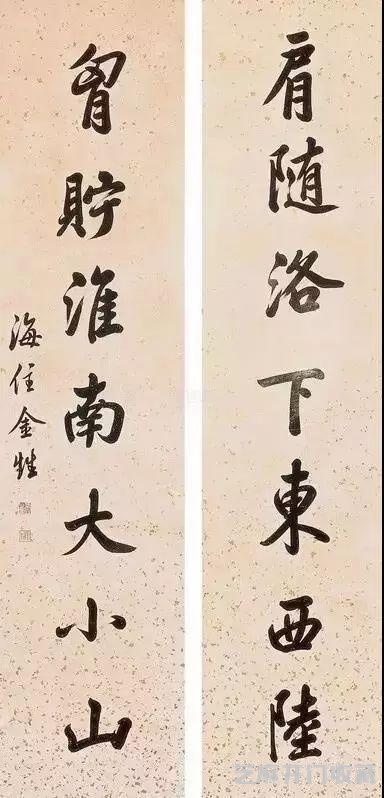 肩随洛下東西陸
胷貯淮南大小山
海住金甡
芝麻开门收藏